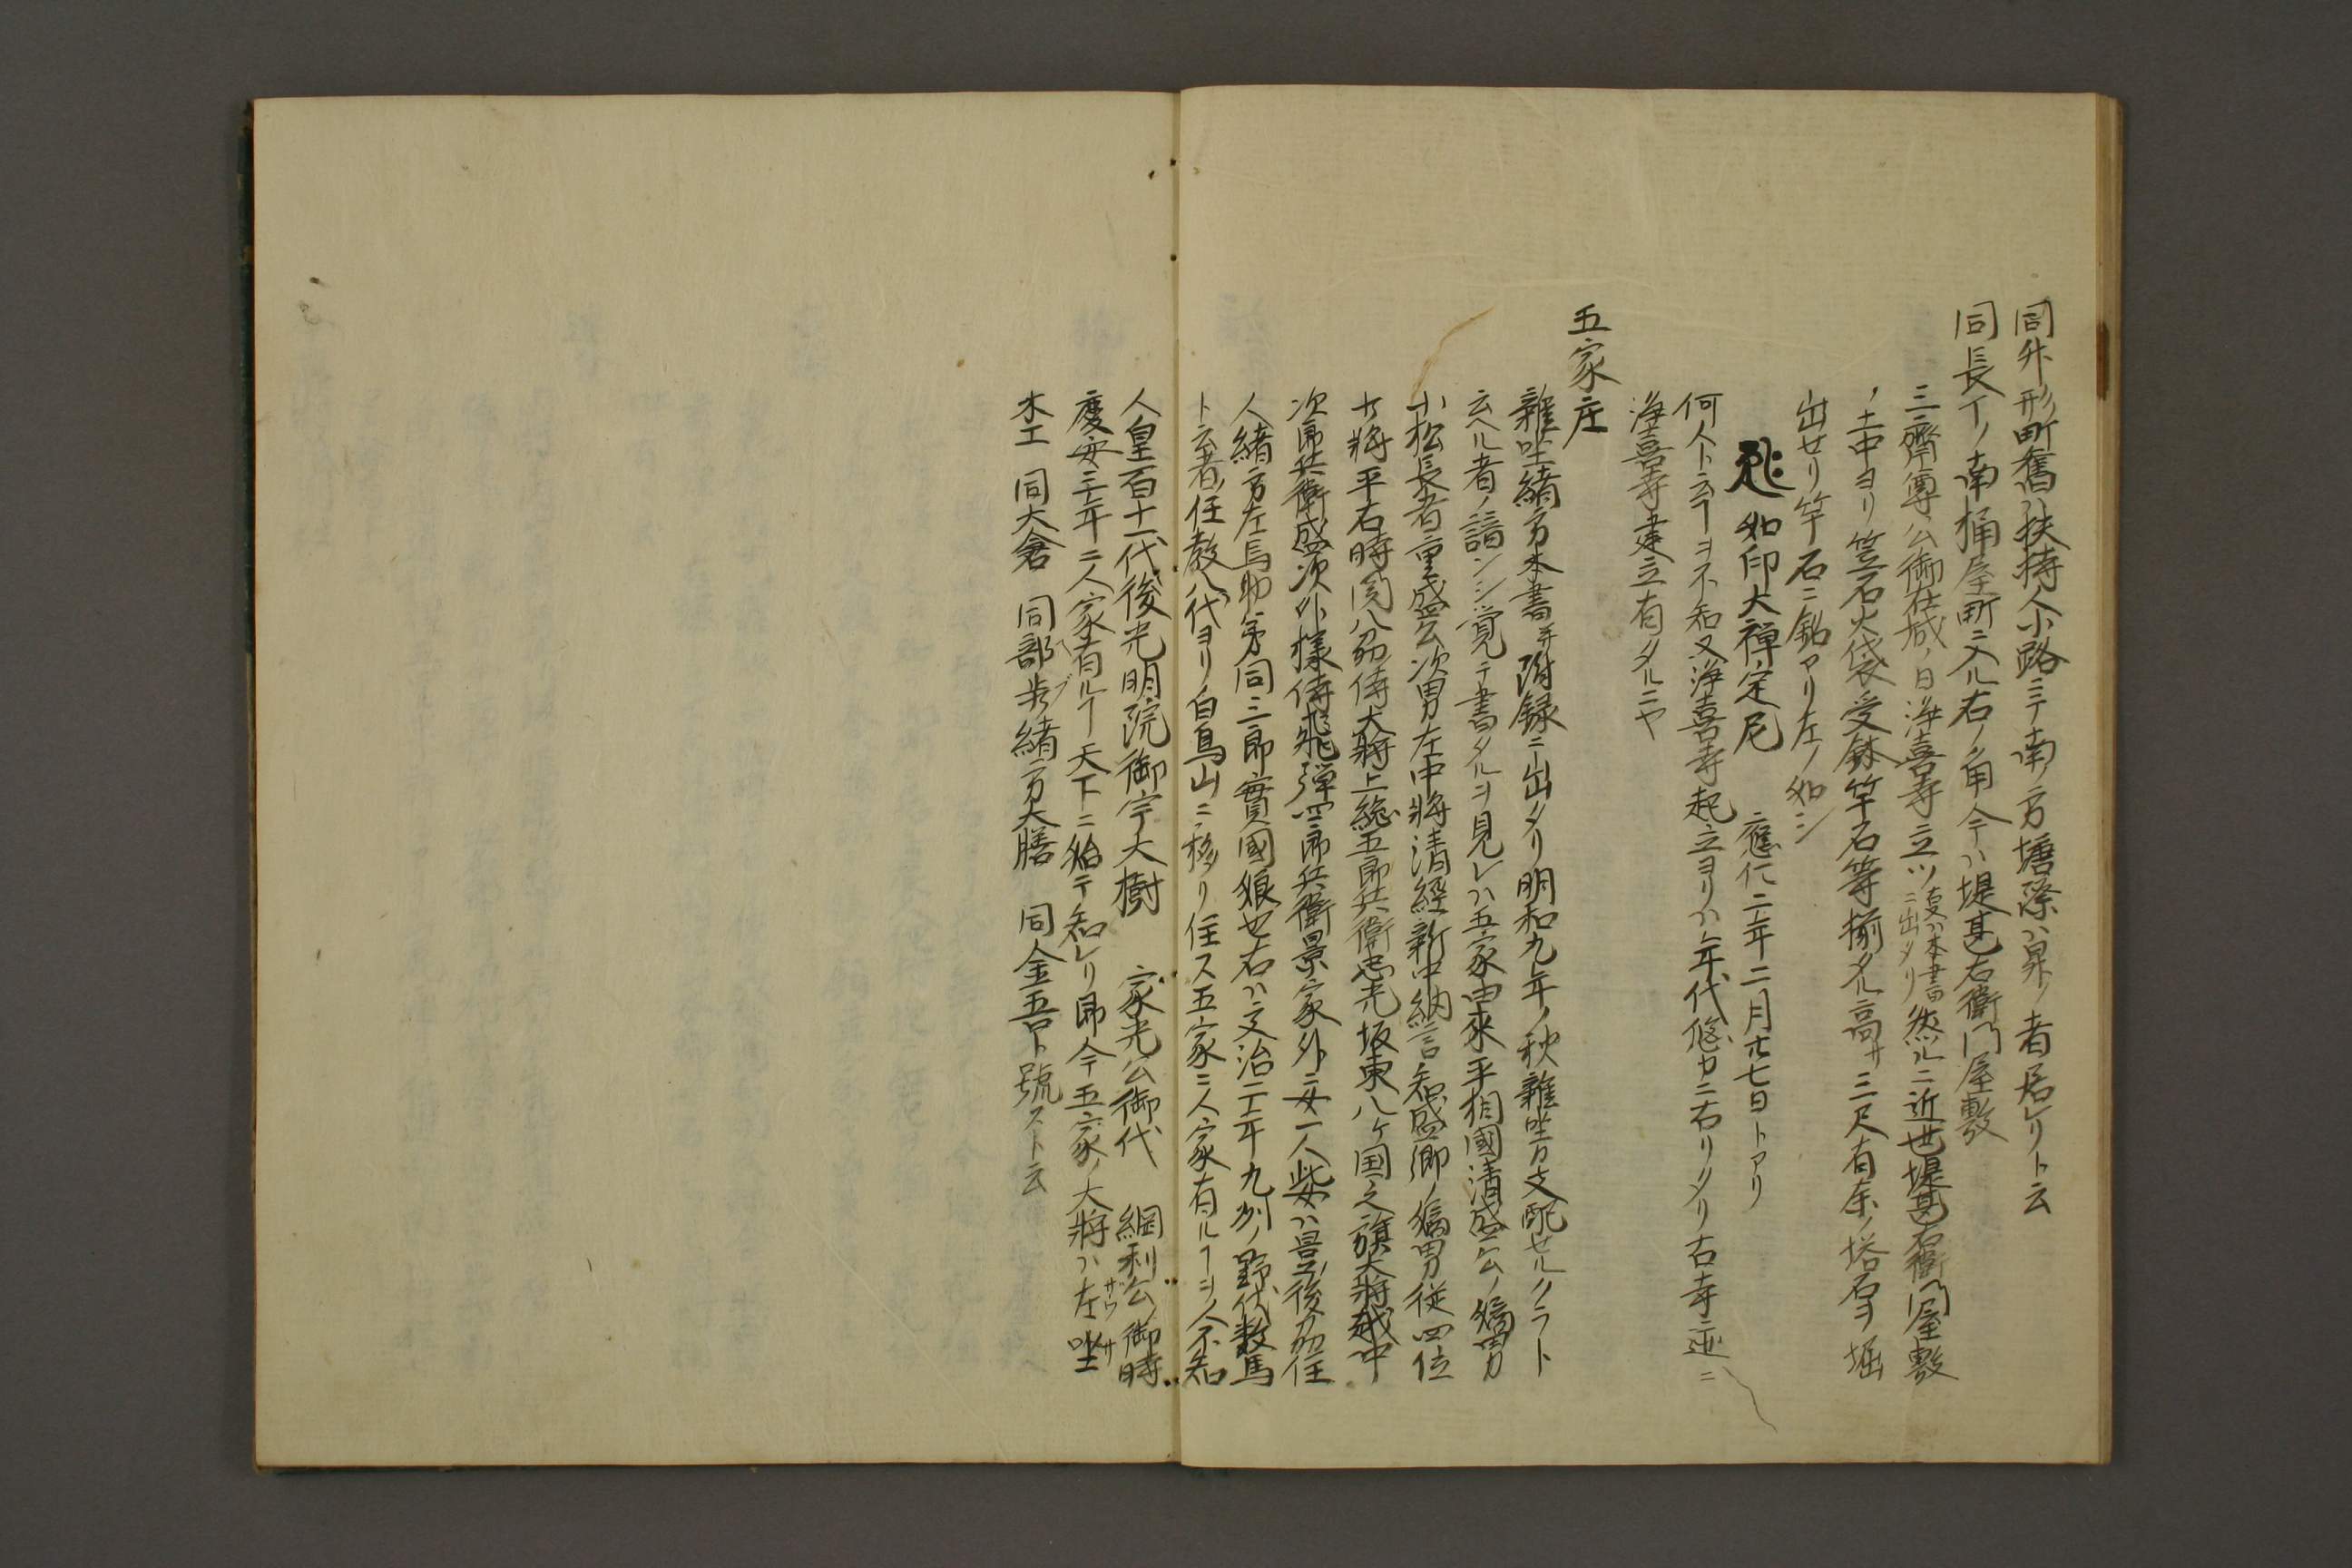 同外形町舊ハ扶持人小路ニテ南ノ方塘際ハ昇ノ者居レリト云
同長丁ノ南桶屋町ニ入ル右ノ角今ハ堤甚右衛門屋敷
三齋尊公御在城ノ日浄喜寺立ツ 右叓ハ本書ニ出タリ 然ルニ近世堤甚右衛門屋敷
ノ土中ヨリ笠石火袋受鉢竿石等揃タル高サ三尺有余ノ塔石ヲ堀
出せリ竿石ニ銘アリ左ノ如シ
如印大禅定尼 應仁二年二月廿七日トアリ
何人ト云ヿヲ不知又浄喜寺起立ヨリハ年代悠カニ古リタリ古寺迹ニ
浄喜寺建立有タルニヤ
五家庄
雜㘴緒方本書并附録ニ出タリ明和九年ノ秋雜㘴方支配せルクラト
云ヘル者ノ諳ンシ覚テ書タルヲ見レハ五家由來平相國清盛公ノ嫡男
小松長者重盛公次男左中將清經新中納言知盛卿ノ嫡男従四位
少將平右時関八刕侍大將上総五郎兵衛忠光坂東八ヶ国之旗大將越中
次郎兵衛盛次外様侍飛弾四郎兵衛景家外ニ女一人此女ハ豊後刕住
人緒方左馬助弟同三郎實國娘也右ハ文治二年九列ノ野伏数馬
ト云者ノ住教八代ヨリ白鳥山ニ移リ住ス五家ニ人家有ルヿヲ人不知
人皇百十一代後光明院御宇大樹 家光公御代 綱利公御時
慶安三年ニ人家有ルヿ天下ニ始テ知レリ即今五家ノ大將ハ左㘴
木工 同大倉 同部歩緒方大膳 同金吾ト號スト云